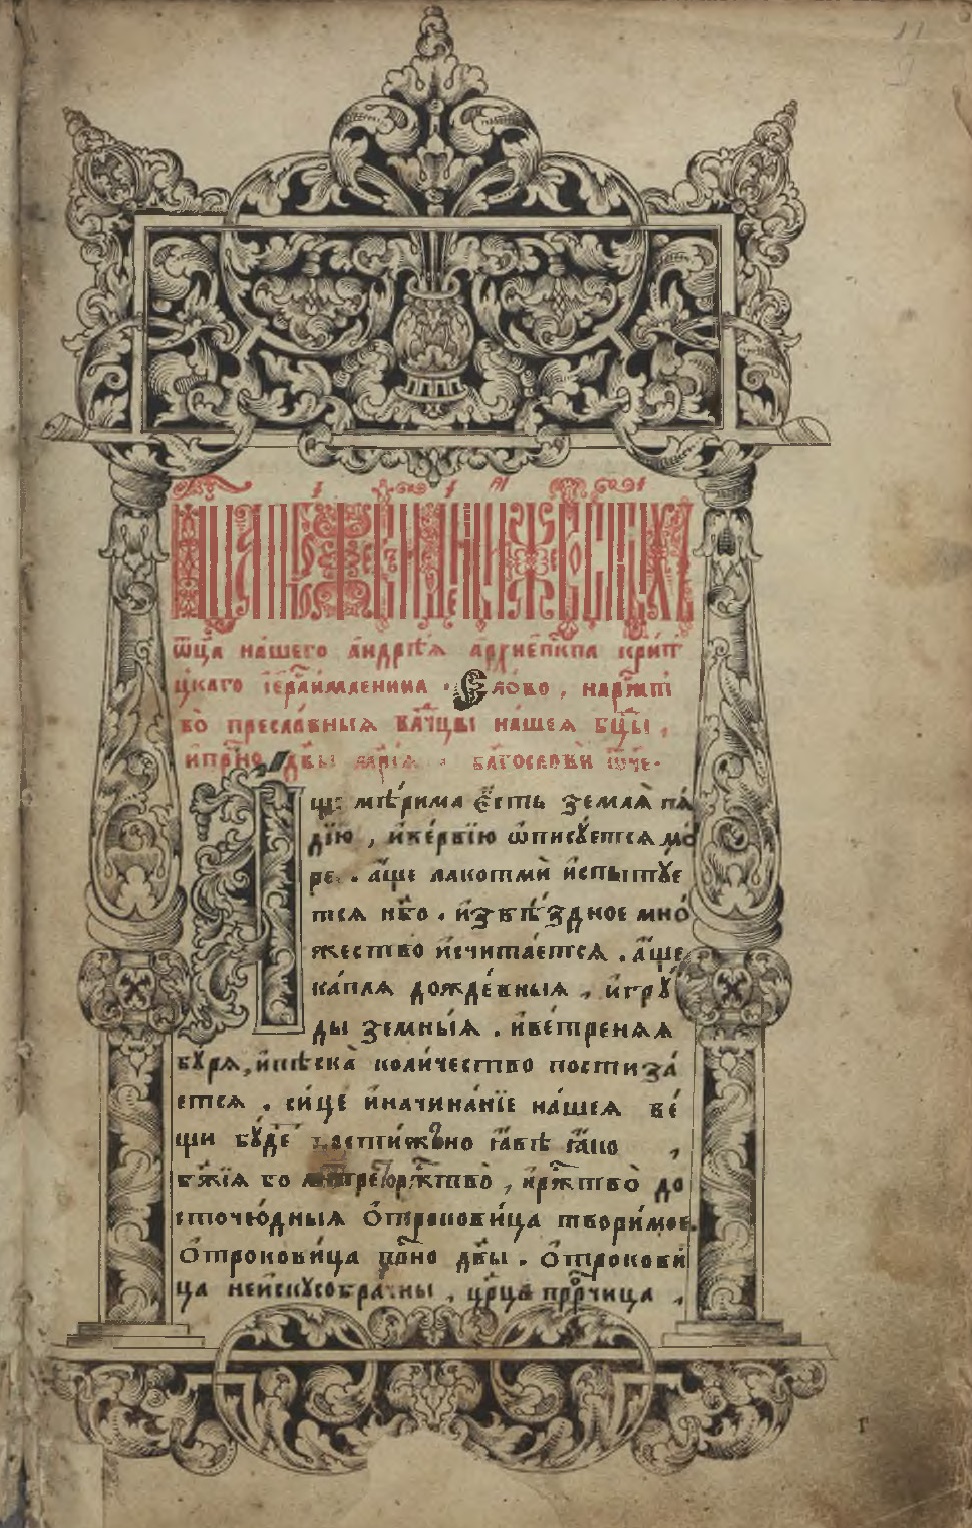 ѿц҃а на́шего а҆ндрѣ́а а҆рхиеп҃кпа крит
цкаго і҆ерⷭ҇али́млѧнина . Сло́во , на ржⷭ҇т
во̀ пресла́вныѧ влⷣчцы на́шеѧ бцⷣы ,
и҆ прⷭ҇но дв҃ы мр҃і́ѧ . блгⷭ҇ословѝ ѻ҆́ч҃е .
А҆́ще мѣ́рима є҆́сть землѧ̀ пѧ́
дїю , и҆ ке́рвїю ѡ҆писꙋ́етсѧ мо́
ре . а҆́ще лакотмѝ и҆спытꙋ́е
тсѧ нб҃о . и҆ ѕвѣ́здное мно́
жество и҆счита́етсѧ . а҆́ще
ка́плѧ дожде́вныѧ , и҆ грꙋ́
ды земны́ѧ . и҆ ве́тренаѧ
бꙋ́рѧ , и҆ пѣска̀ коли́чество постиза́
етсѧ . си́це и҆ начина́нїе на́шеѧ ве́
щи бꙋ́де
бж҃їѧ бо ржⷭ҇тво̀ , и҆ ржⷭ҇тво̀ до
сточю́дныѧ ѻ҆трокови́ца твори́мое .
ѻ҆трокови́ца прⷭ҇но дв҃ы . ѻ҆трокови́
ца неи҆скꙋсобра́чны , црⷪ҇ца прⷪ҇рчица ,
г